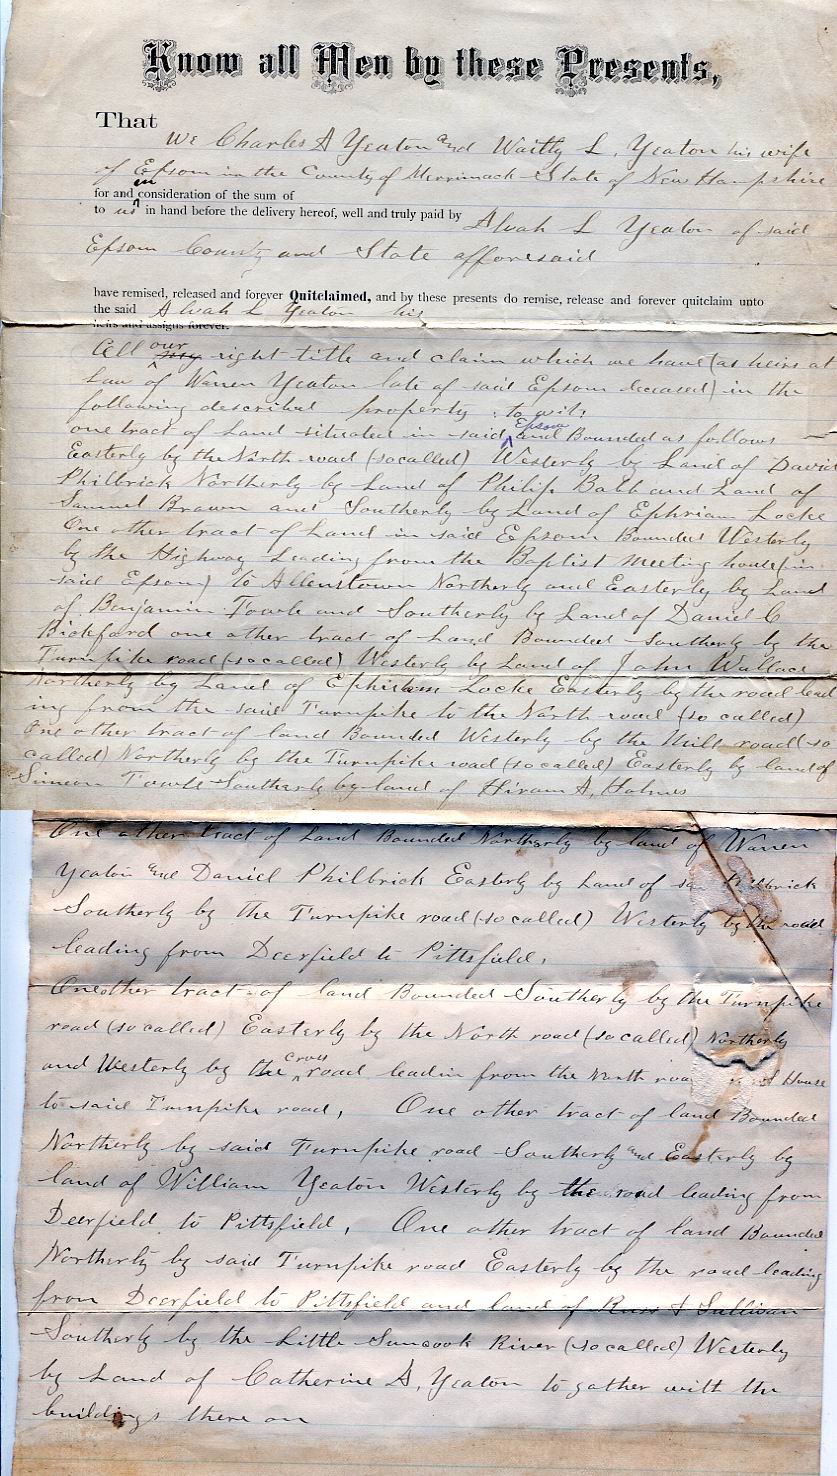 Know all Men by these Presents,
That
We Charles A Yeaton and Waitly L. Yeaton his wife
of Epsom in the County of Merrimack State of New Hampshire
for and in consideration of the sum of
to us in hand before the delivery hereof, well and truly paid by Alvah L Yeaton of said
Epsom County and State afforesaid
have remised, released and forever Quitclaimed, and by these presents do remise, release and forever quitclaim unto
the said Alvah L Yeaton his
heirs and assigns forever.
All our my right title and claim which we have (as heirs at
Law of Warren Yeaton late of said Epsom deceased) in the
following described property : to wit,
one tract of Land situated in said Epsom and Bounded as follows
Easterly by the North road (so called) Westerly by Land of David
Philbrick Northerly by Land of Philip Babb and Land of
Samuel Brown and Southerly by Land of Ephriam Locke
One other tract of Land in said Epsom Bounded Westerly
by the Highway Leading from the Baptist meeting house (in
said Epsom) to Allenstown Northerly and Easterly by Land
of Benjamin Towle and Southerly by Land of Daniel C
Bickford one other tract of Land Bounded Southerly by the
Turnpike road (so called) Westerly by Land of John Wallace
Northerly by Land of Ephriam Locke Easterly by the road lead
ing from the said Turnpike to the North road (so called)
One other tract of land Bounded Westerly by the Mill road (so
called) Northerly by the Turnpike road (so called) Easterly by land of
Simeon Towle Southerly by land of Hiram A, Holmes
One other tract of Land Bounded Northerly by land of Warren
Yeaton and Daniel Philbrick Easterly by Land of Philbrick
Southerly by the Turnpike road (so called) Westerly by the road
leading from Deerfield to Pittsfield,
One other tract of land Bounded Southerly by the Turnpike
road (so called) Easterly by the North road (so called) Northerly
and Westerly by the Cross road leadin from the North House
to said Turnpike road, One other tract of land Bounded
Northerly by said Turnpike road Southerly and Easterly by
land of William Yeaton Westerly by the road leading from
Deerfield to Pittsfield, One other tract of land Bounded
Northerly by said Turnpike road Easterly by the road leading
from Deerfield to Pittsfield and land of Russ & Sullivan
Southerly by the Little Suncook River (so called) Westerly
by Land of Catherine A, Yeaton to gather with the
buildings there on